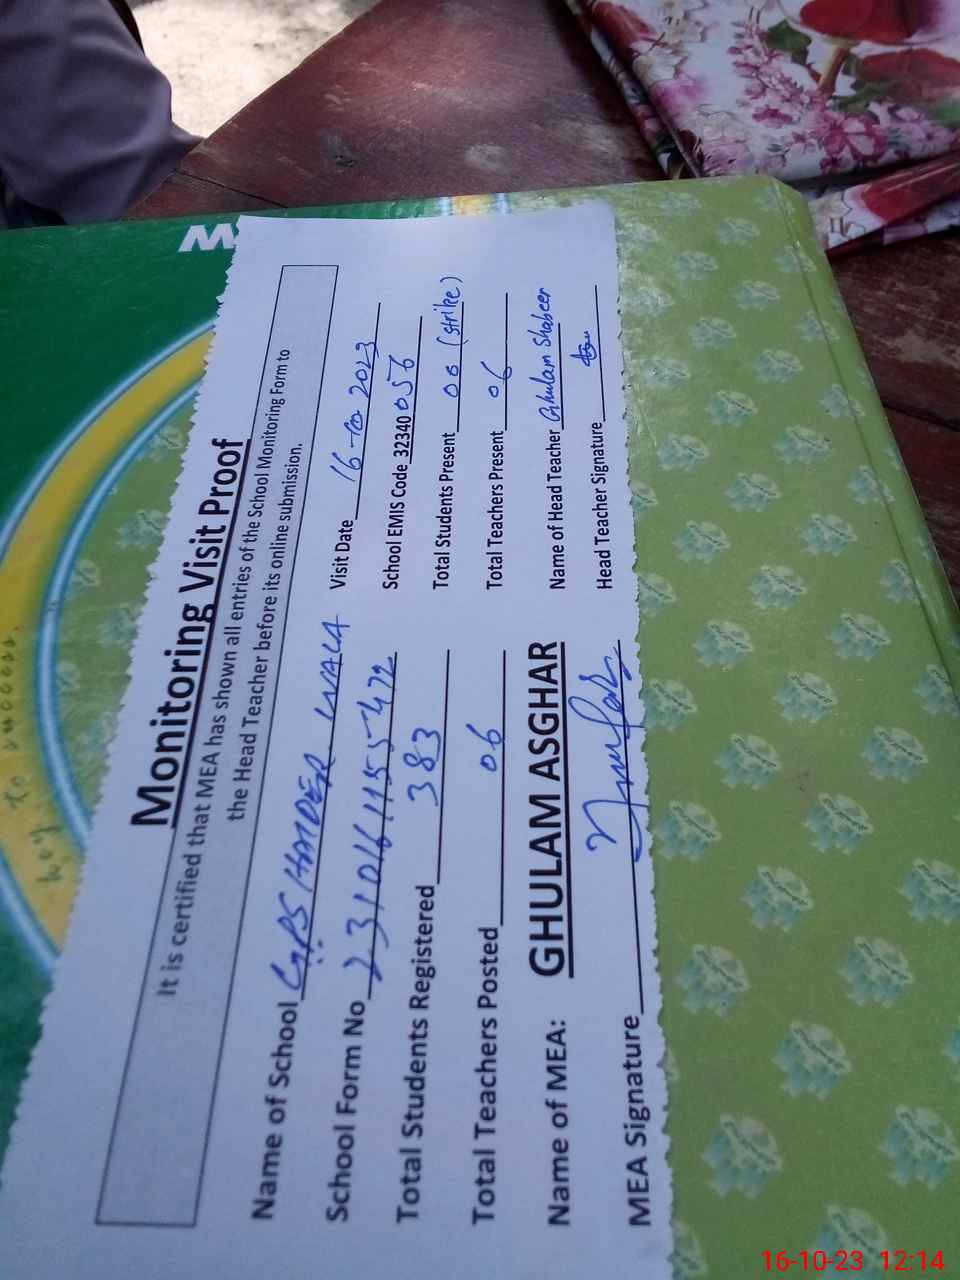 Monitoring Visit Proof
It is certified that MEA has shown all entries of the School Monitoring Form to
the Head Teacher before its online submission.
Name of School GPS HAIDER WALA Visit Date 16-10-2023
School Form No 2310161155472 School EMIS Code 32340056
Total Students Registered 383 Total Students Present 00 (strike)
Total Teachers Posted 06 Total Teachers Present 06
Name of MEA: GHULAM ASGHAR Name of Head Teacher Ghulam Shabeer
MEA Signature Head Teacher Signature
key to success.
16-10-23 12:14